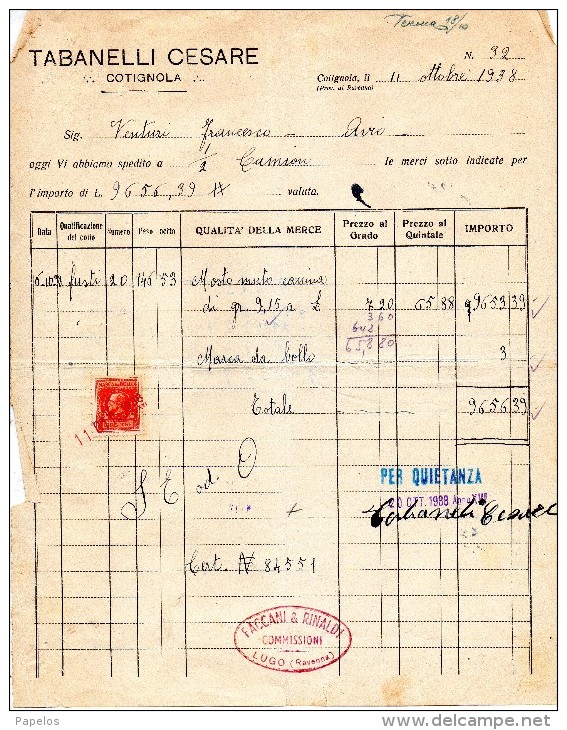 18/10
TABANELLI CESARE
COTIGNOLA
N. 92
Cotignola, li 11 ottobre 1938
(Prov. di Ravenna)
Sig. Venturi Francesco - Avio
oggi Vi abbiamo spedito a 1/2 Camion le merci sotto indicate per
l'importo di L. 9656,39 valuta.
Data Qualificazione del collo Numero Peso netto QUALITA' DELLA MERCE Prezzo al Grado Prezzo al Quintale IMPORTO
fusti 20 146 53 Mosto muto
di gr 9,15 a £ 7 20 65 88 9653 39
360
642
65,880
Marca da bollo 3
Totale 9656 39
PER QUIETANZA
20 OTT. 1938 Anno XVI
Tabanelli Cesare
Cert. N 84551
FACCANI & RINALDI
COMMISSIONI
LUGO (Ravenna)
Papelos
www.delcampe.net